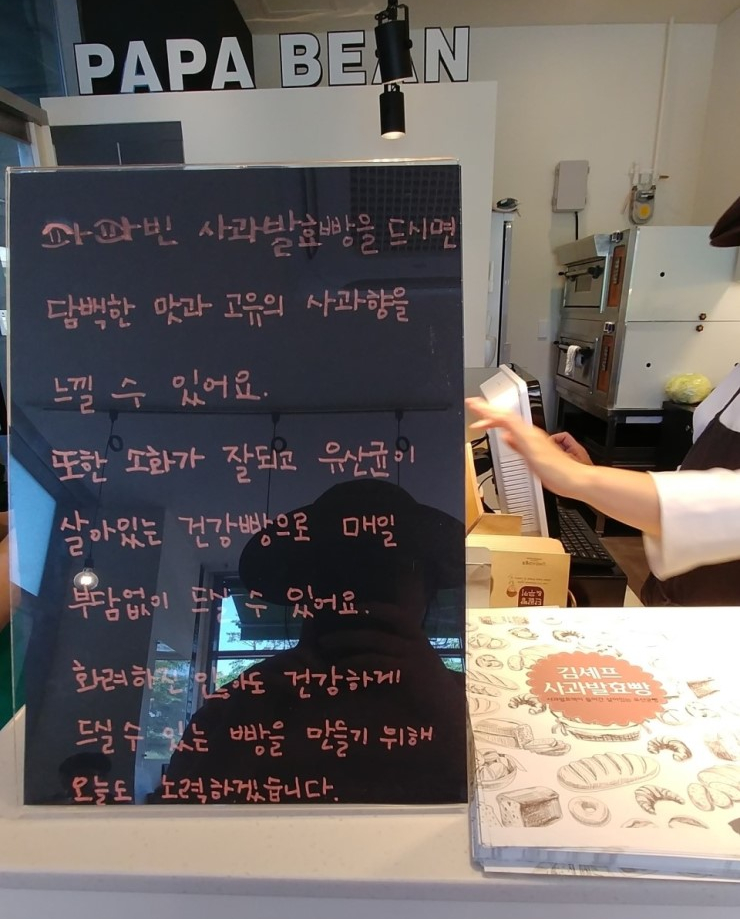 PAPA BEAN
파파빈 사과발효빵을 드시면
담백한 맛과 고유의 사과향을
느낄 수 있어요.
또한 소화가 잘되고 유산균이
살아있는 건강빵으로 매일
부담없이 드실 수 있어요.
화려하진 않아도 건강하게
드실 수 있는 빵을 만들기 위해
오늘도 노력하겠습니다.
김셰프
사과발효빵